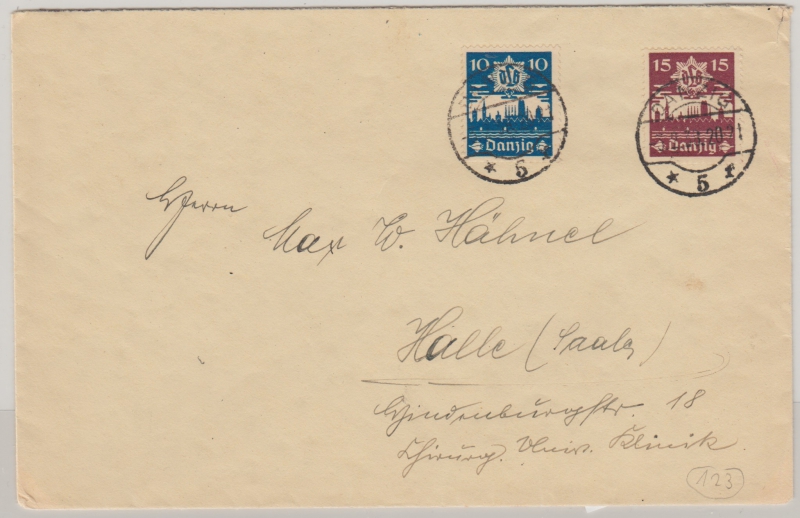 10 10
DLB
Danzig
* 5 f
15 15
DLB
Danzig
* 5 f
Herrn
Max W. Hähnel
Halle (Saale)
Hindenburgstr. 18
Chirurg. Univ. Klinik.
123